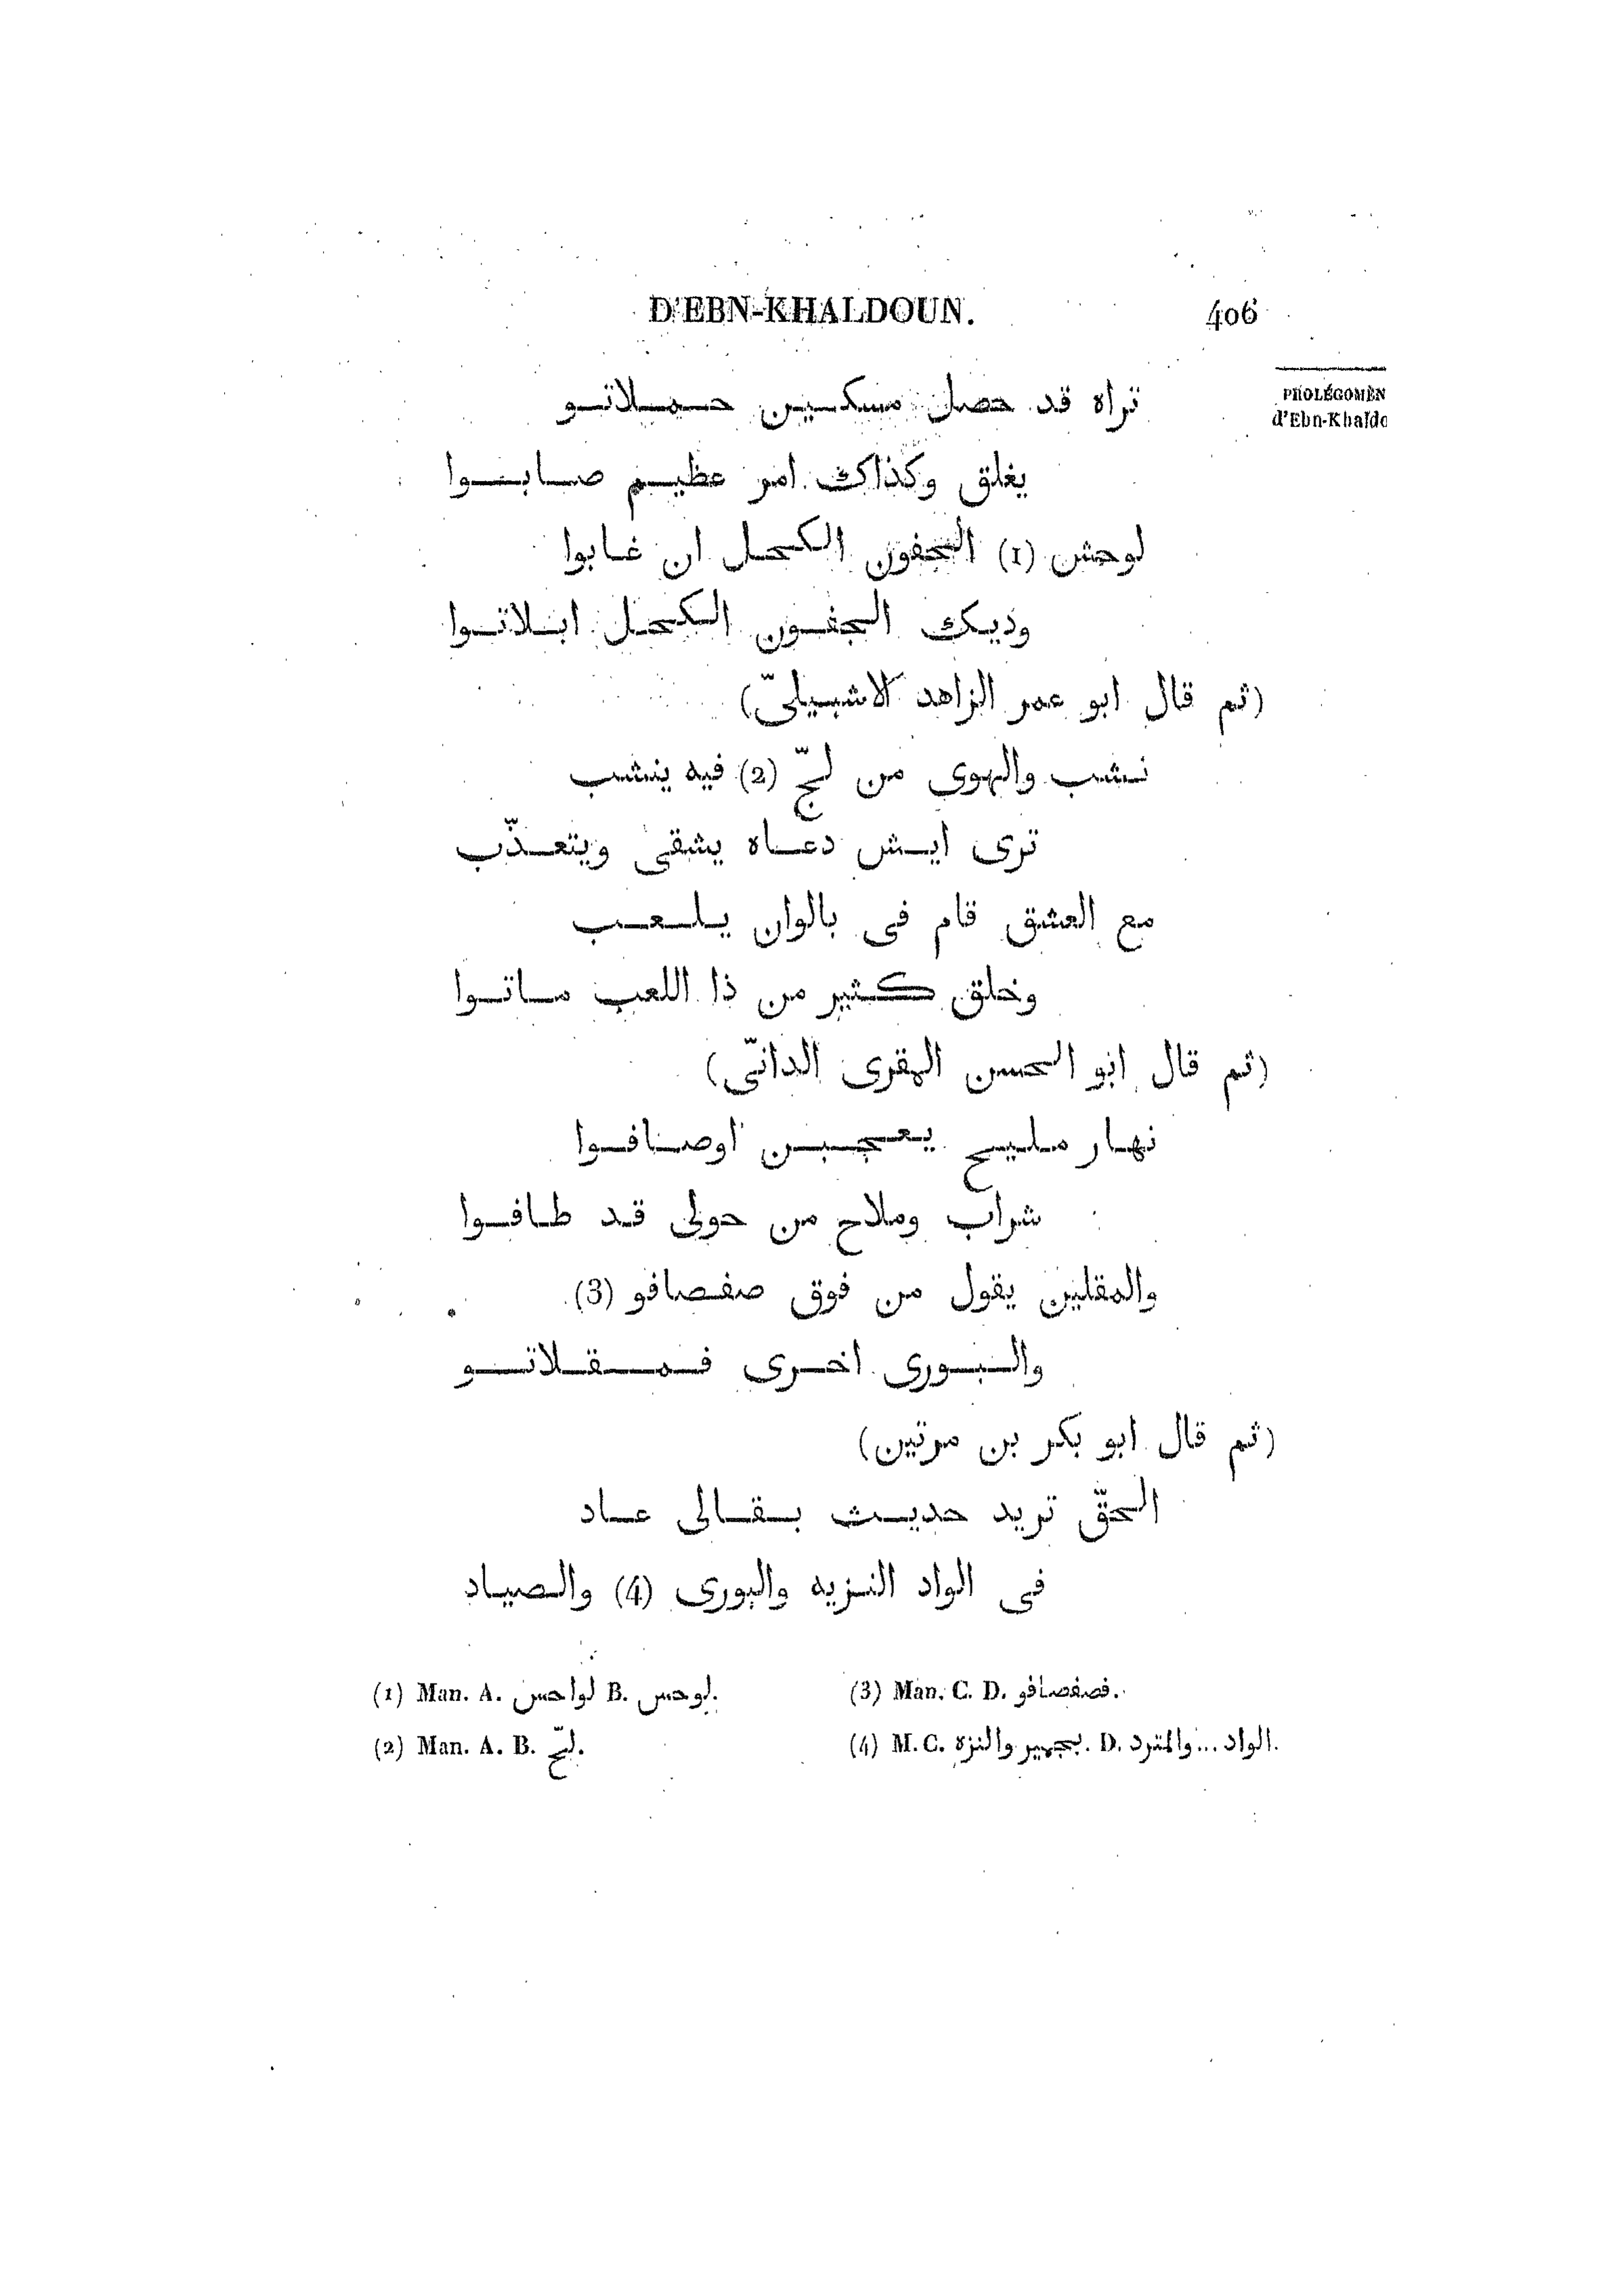 D'EBN-KHALDOUN.
406
PROLÉGOMÈN
d'Ebn-Khaldo
تراه قد حصل مسكين حملاتو
يغلق وكذاك امر عظيم صابوا
لوحش (1) الجفون الكحل ان غابوا
وديك الجفون الكحل ابلاتوا
(ثم قال ابو عمر الزاهد الاشبيليّ)
نشب والهوى من لجّ (2) فيه ينشب
ترى ايش دعاه يشقى ويتعذّب
مع العشق قام فى بالوان يلعب
وخلق كثير من ذا اللعب ماتوا
(ثم قال ابو الحسن المقرى الدانىّ)
نهار مليح يعجبن اوصافوا
شراب وملاح من حولى قد طافوا
والمقلين يقول من فوق صفصافو (3)
والبورى اخرى فمقلاتو
(ثم قال ابو بكر بن مرتين)
الحقّ تريد حديث بقالى عاد
فى الواد النزيه والبورى (4) والصياد
(1) Man. A. لواحس B. لوحس.
(2) Man. A. B. لبّح.
(3) Man. C. D. فصفصافو.
(4) M. C. بجهير والنزه. D. الواد...والمترد.